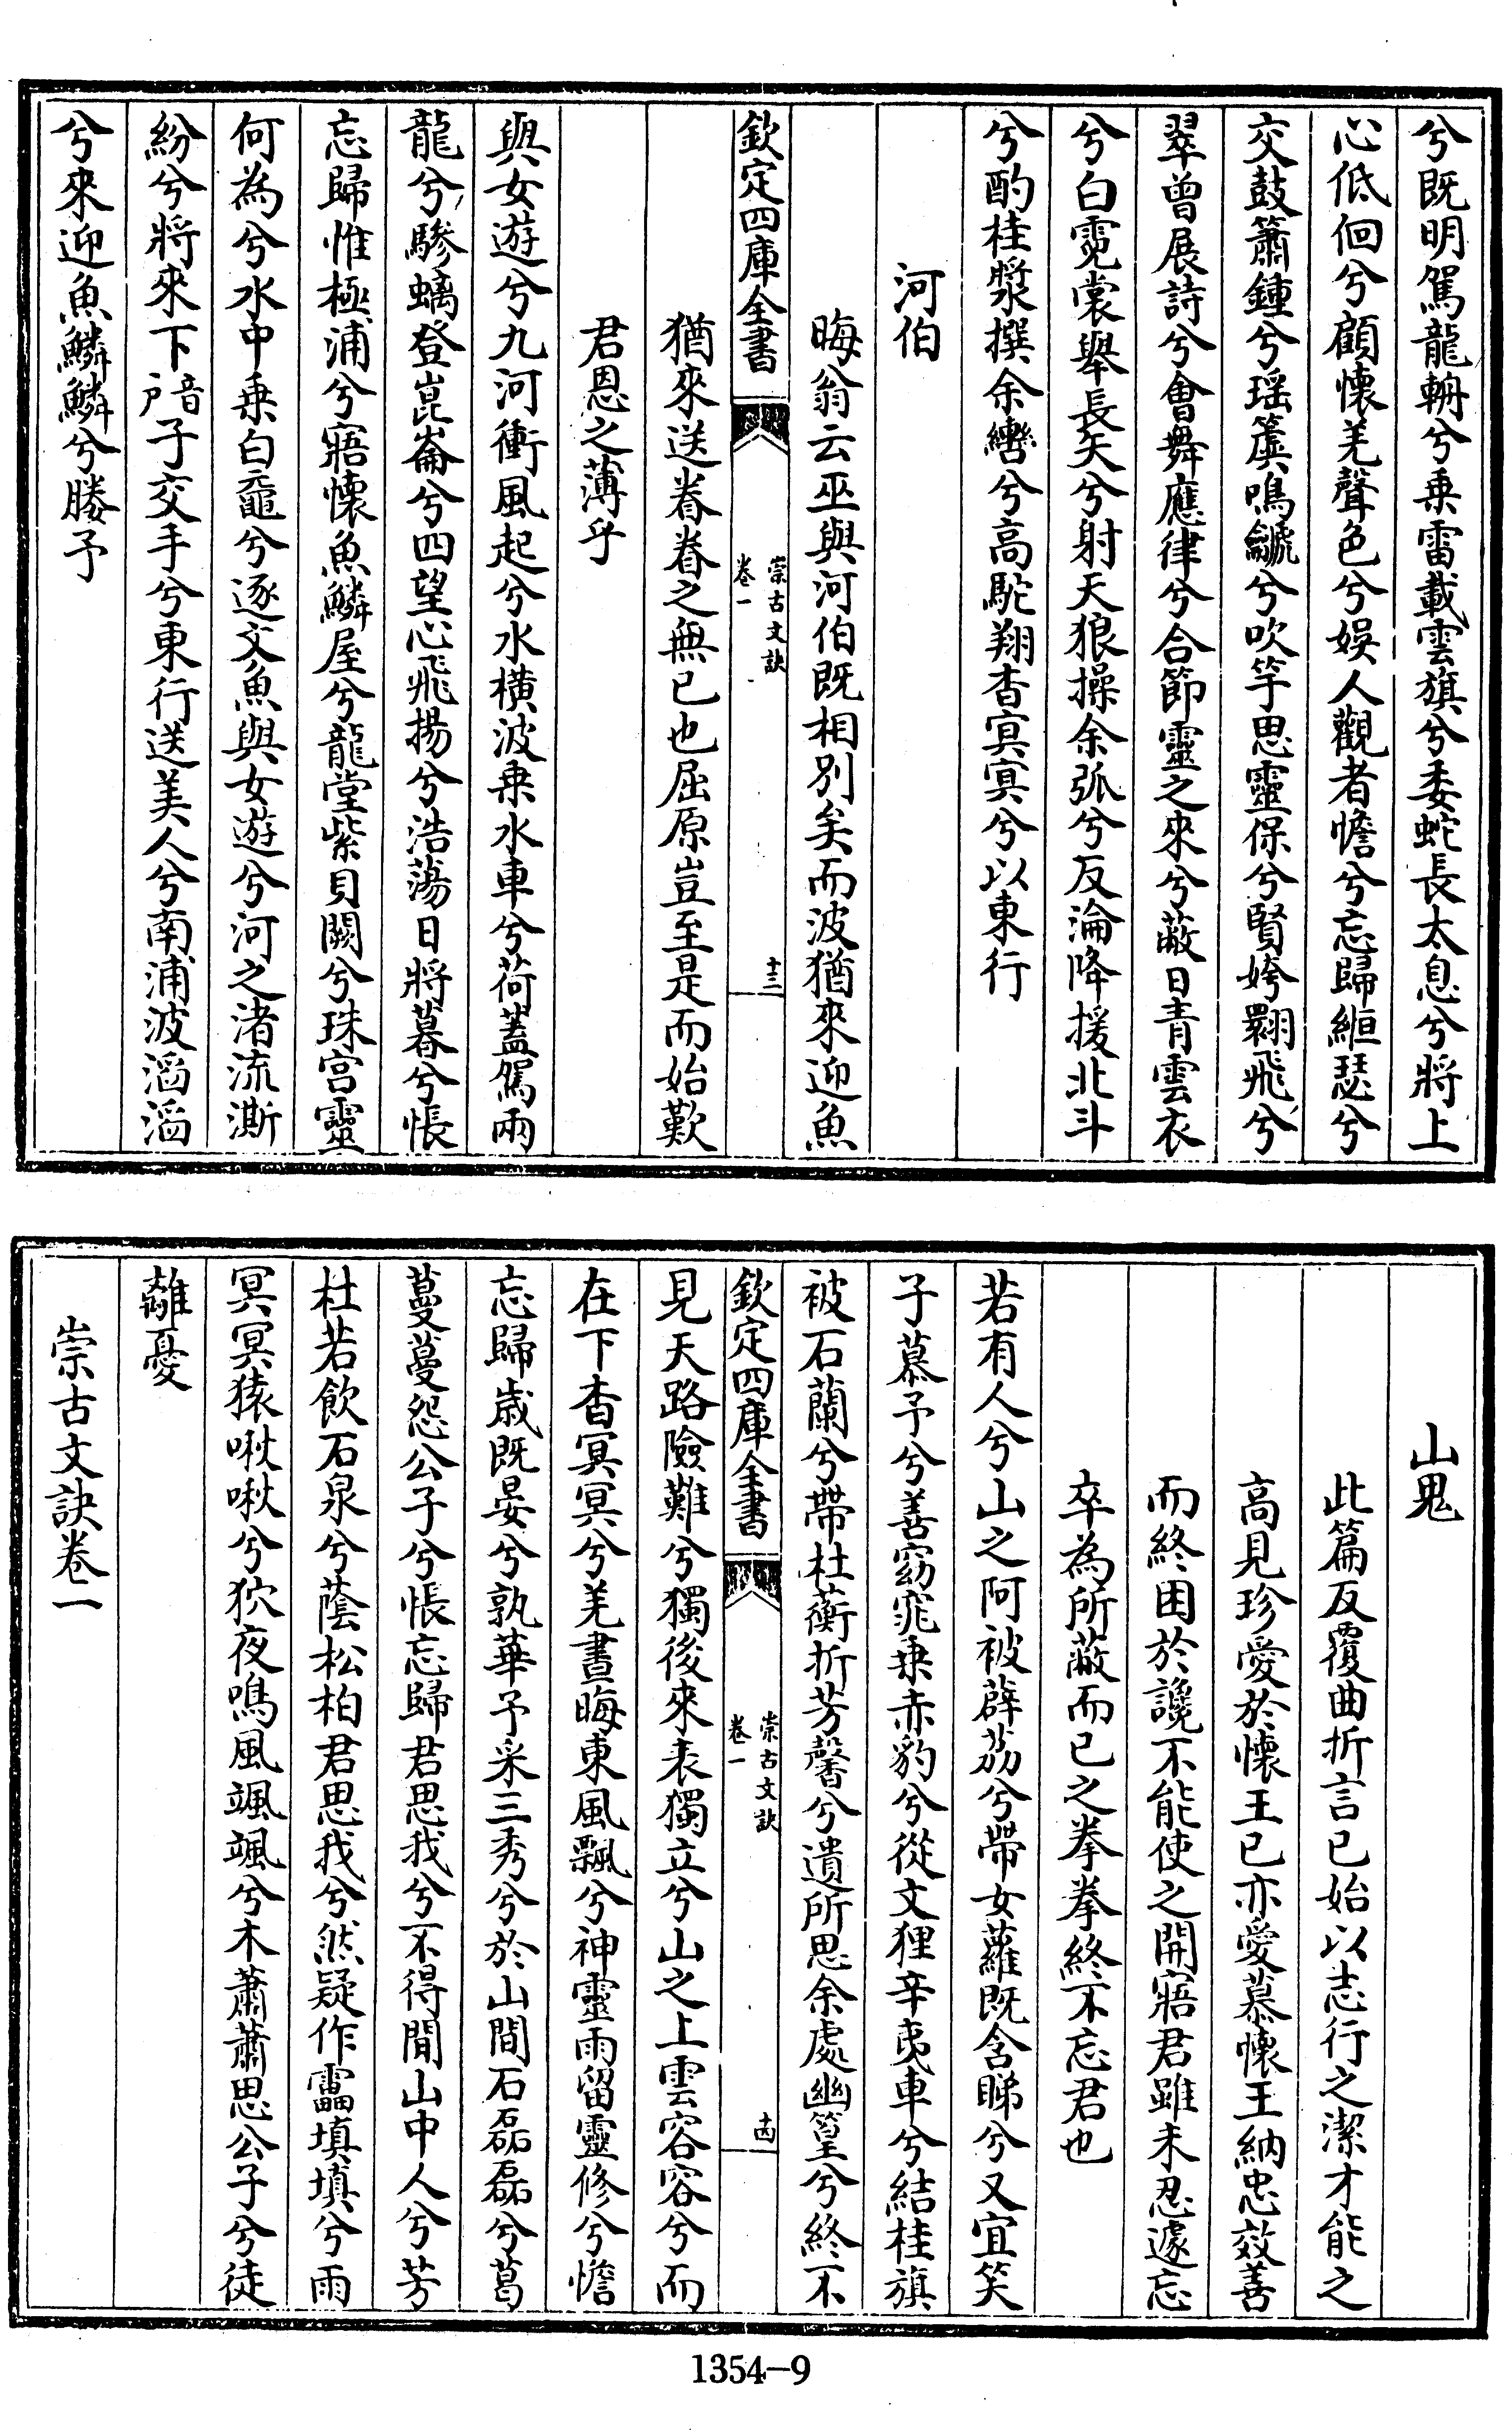 兮既明駕龍輈兮乗雷載雲旗兮委蛇長太息兮將上
心低佪兮顧懷羌聲色兮娛人觀者憺兮忘歸縆瑟兮
交鼓簫鍾兮瑤簴鳴鷈兮吹竽思靈保兮賢姱翾飛兮
翠曾展詩兮會舞應律兮合節靈之來兮蔽日青雲衣
兮白霓裳舉長矢兮射天狼操余弧兮反淪降援北斗
兮酌桂漿撰余轡兮高駝翔杳冥冥兮以東行
河伯
晦翁云巫與河伯既相别矣而波猶來迎魚
欽定四庫全書
崇古文訣
卷一
十三
猶來送眷眷之無已也屈原豈至是而始歎
君恩之薄乎
與女遊兮九河衝風起兮水橫波乗水車兮荷蓋駕兩
龍兮驂螭登崑崙兮四望心飛揚兮浩蕩日將暮兮悵
忘歸惟極浦兮寤懷魚鱗屋兮龍堂紫貝闕兮珠宮靈
何為兮水中乗白黿兮逐文魚與女遊兮河之渚流澌
紛兮將來下音户子交手兮東行送美人兮南浦波滔滔
兮來迎魚鱗鱗兮媵予
山鬼
此篇反覆曲折言已始以志行之潔才能之
高見珍愛於懷王已亦愛慕懷王納忠效善
而終困於讒不能使之開寤君雖未忍遽忘
卒為所蔽而已之拳拳終不忘君也
若有人兮山之阿被薜荔兮帶女蘿既含睇兮又宜笑
子慕予兮善窈窕乗赤豹兮從文狸辛夷車兮結桂旗
被石蘭兮帶杜蘅折芳馨兮遺所思余處幽篁兮終不
欽定四庫全書
崇古文訣
卷一
十四
見天路險難兮獨後來表獨立兮山之上雲容容兮而
在下杳冥冥兮羌晝晦東風飄兮神靈雨留靈修兮憺
忘歸歲既晏兮孰華予采三秀兮於山間石磊磊兮葛
蔓蔓怨公子兮悵忘歸君思我兮不得閒山中人兮芳
杜若飲石泉兮蔭松柏君思我兮然疑作靁填填兮雨
冥冥猿啾啾兮狖夜鳴風颯颯兮木蕭蕭思公子兮徒
離憂
崇古文訣卷一
1354-9